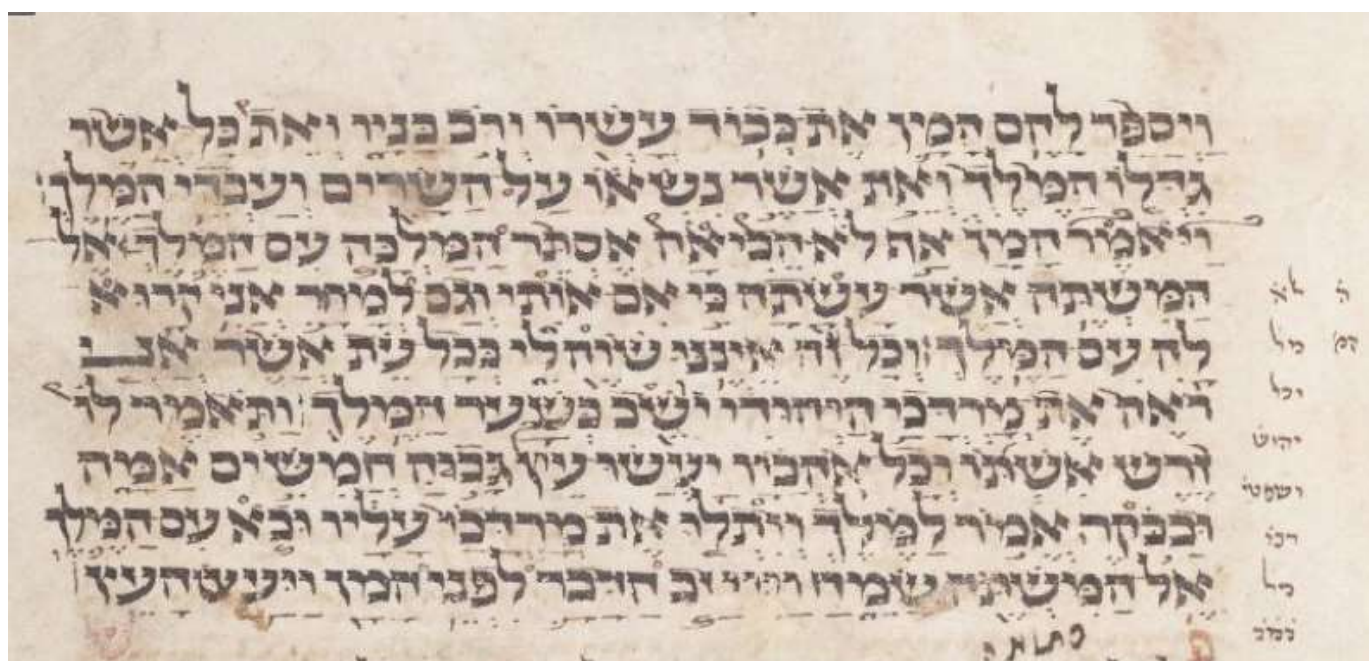 ויספר להם המן את כבוד עשרו ורב בניו ואת כל אשר
גדלו המלך ואת אשר נשאו על השרים ועבדי המלך:
ויאמר המן אף לא הביאה אסתר המלכה עם המלך אל
המשתה אשר עשתה כי אם אותי וגם למחר אני קרוא
לה עם המלך: וכל זה איננו שוה לי בכל עת אשר אני
ראה את מרדכי היהודי ישב בשער המלך: ותאמר לו
זרש אשתו וכל אהביו יעשו עץ גבה חמשים אמה
ובבקר אמר למלך ויתלו את מרדכי עליו ובא עם המלך
אל המשתה שמח וייטב הדבר לפני המן ויעש העץ